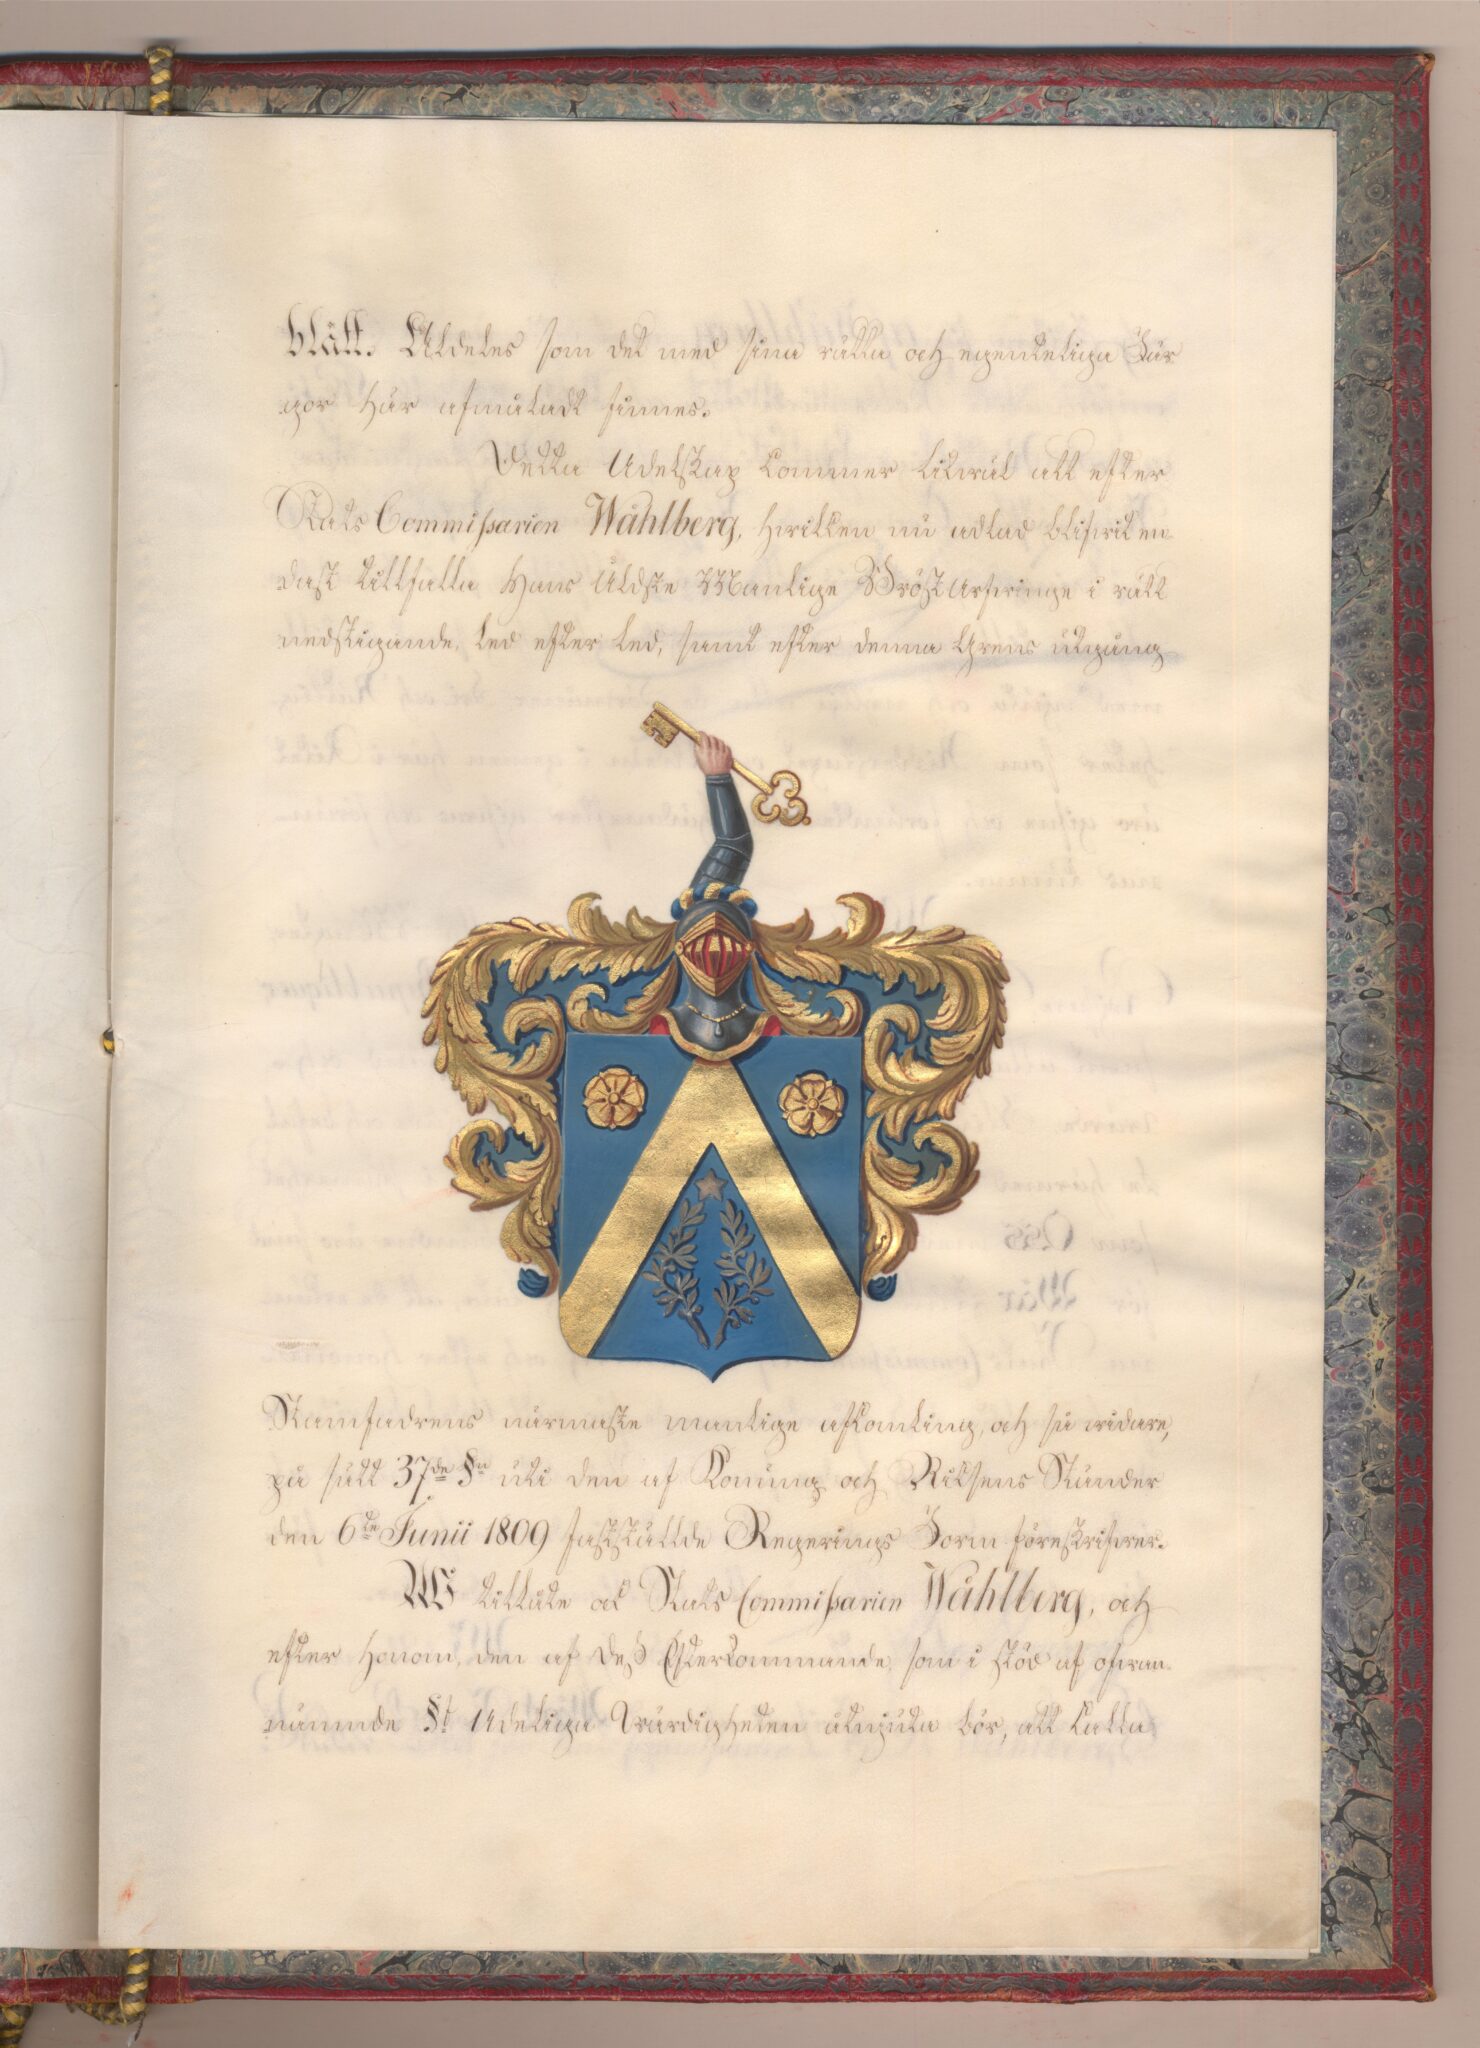 blått. Aldeles som det med sina rätta och egenteliga Fär
gor här afmåladt finnes.
Detta Adelskap kommer likwäl att efter
Stats Commissarien Wåhlberg, hwilken nu adlad blifwit en-
dast tillfalla Hans Äldste Manlige Bröst Arfwinge i rätt
nedstigande led efter led, samt efter denna Grens utgång
Stamfadrens närmaste manlige afkomling, och så widare,
på sätt 37de §n uti den af Konung och Riksens Ständer
den 6te Junii 1809 fastställde Regerings Form föreskrifwer.
Wi tillåte ock Stats Commissarien Wåhlberg, och
efter honom, den af Dess Efterkommande, som i stöd af ofwan-
nämnde §t Adeliga Wärdigheten åtnjuta bör, att kalla